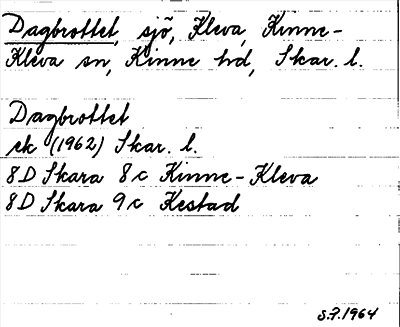 Dagbrottet, sjö, Kleva, Kinne-
Kleva sn, Kinne hd, Skar. l.
Dagbrottet
ek (1962) Skar. l.
8D Skara 8c Kinne-Kleva
8D Skara 9c Kestad
S.F.1964